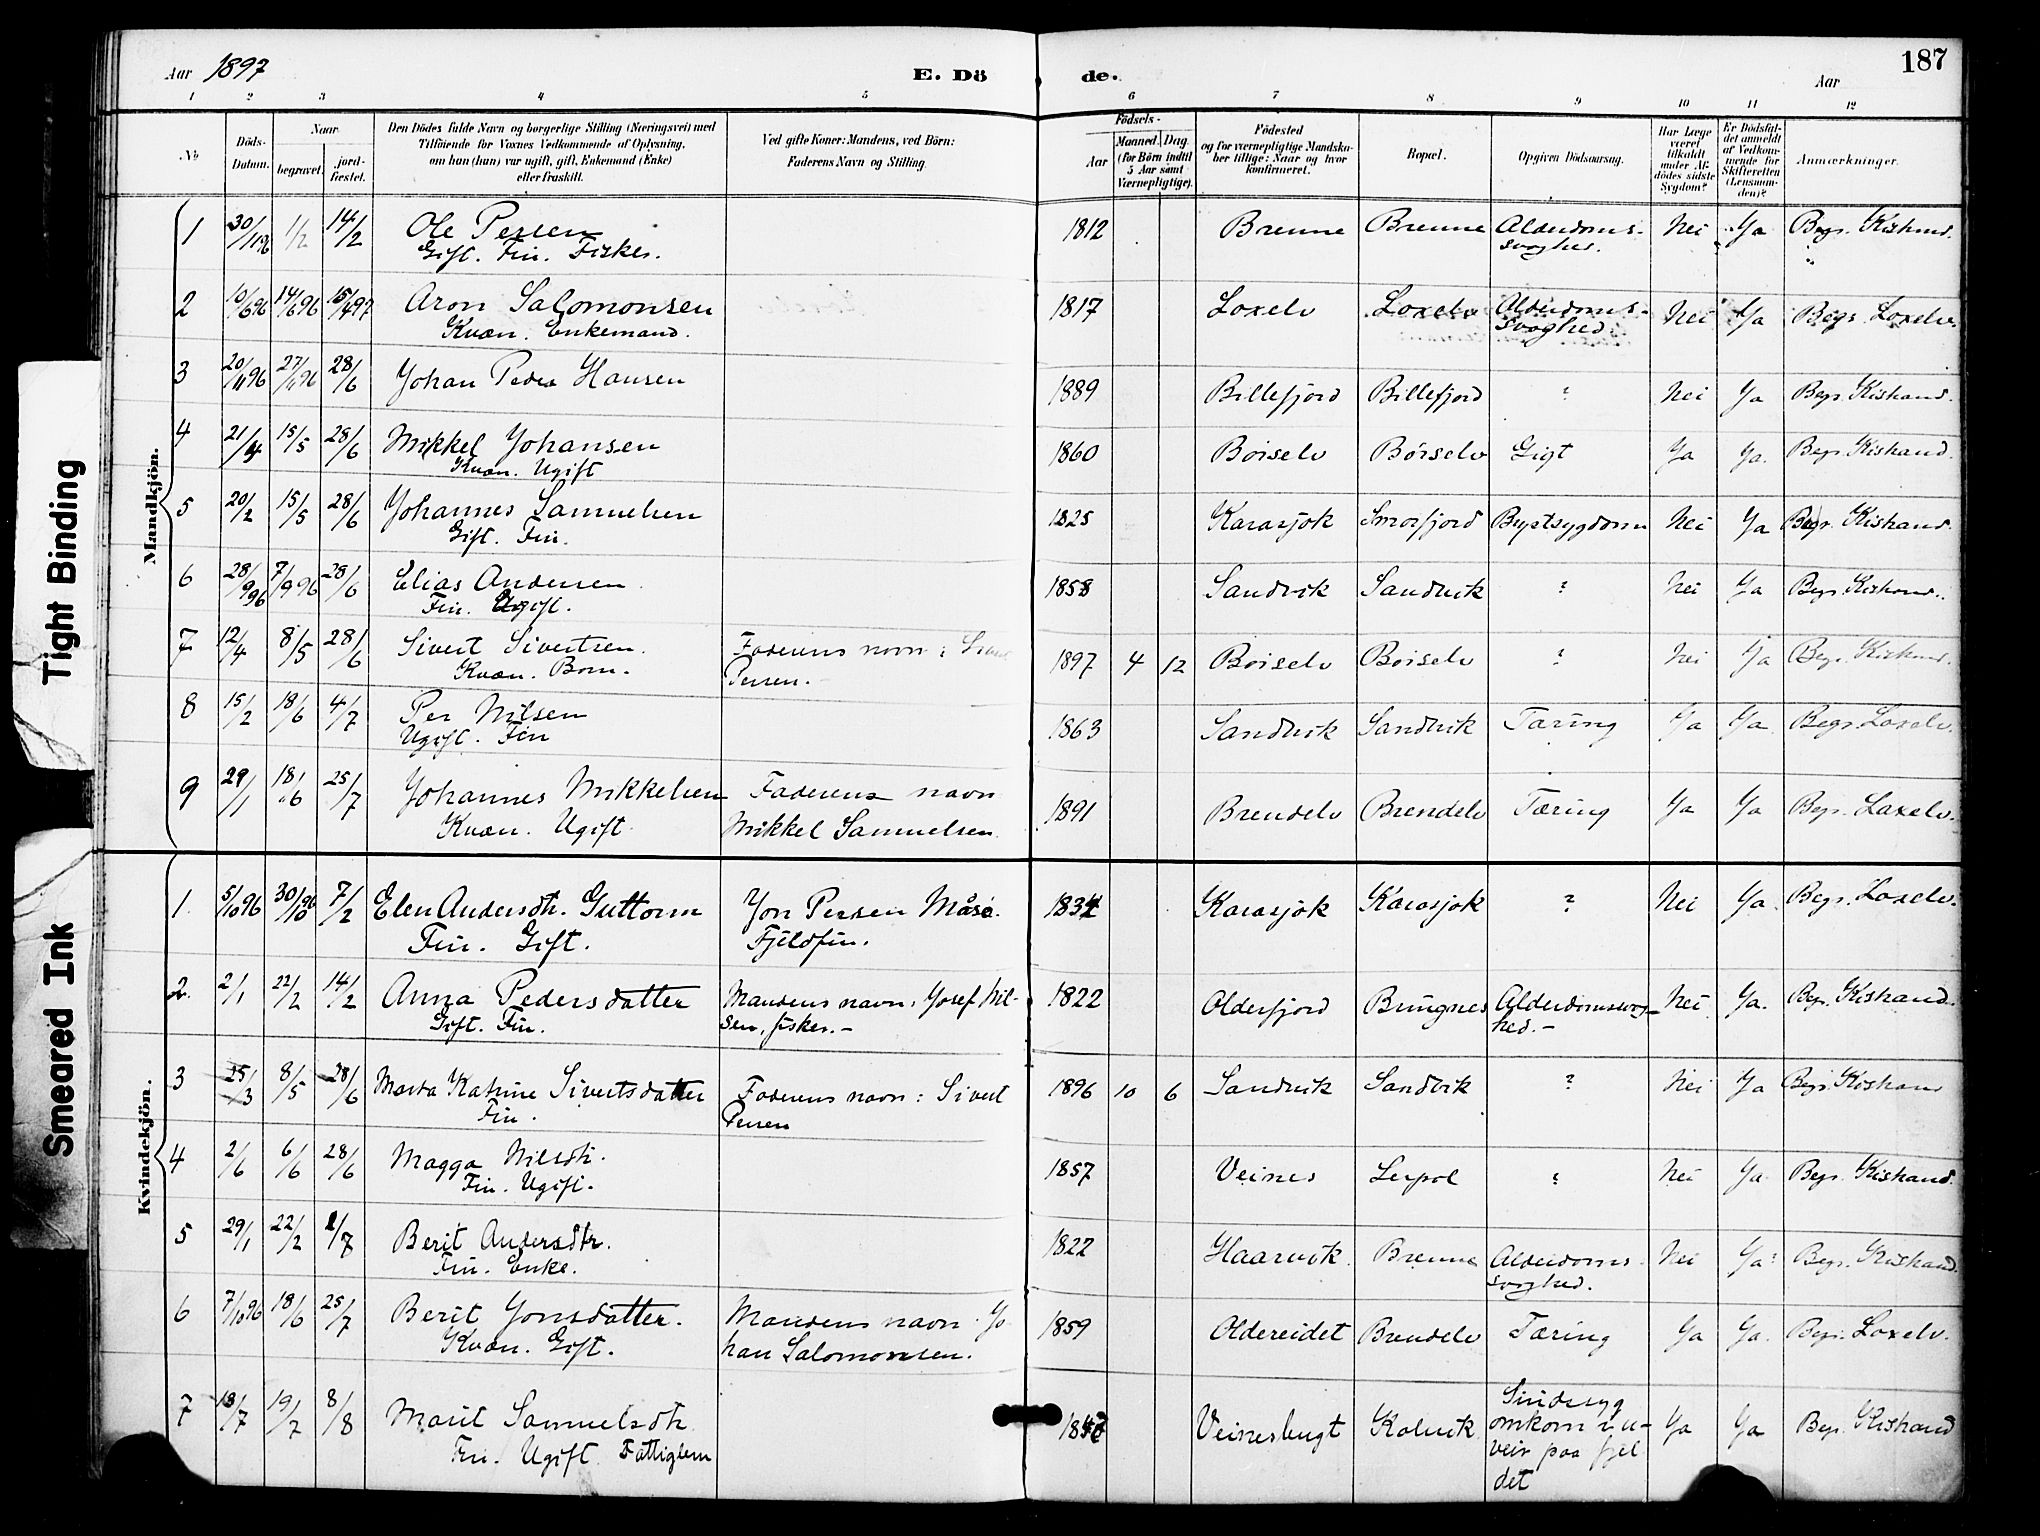 Aar 1897
E. Döde.
Aar
187
1 2 3 4 5 6 7 8 9 10 11 12
№
Döds-Datum.
Naar
begravet.
jordfæstet.
Den Dödes fulde Navn og borgerlige Stilling (Næringsvei) med
Tilföiende for Voxnes Vedkommende af Oplysning,
om han (hun) var ugift, gift, Enkemand (Enke)
eller fraskilt.
Ved gifte Koner: Mandens, ved Börn:
Faderens Navn og Stilling.
Födsels-
Aar
Maaned. Dag
(for Börn indtil
5 Aar samt
Værnepligtige).
Födested
og for værnepligtige Mandska-
ber tillige: Naar og hvor
konfirmeret.
Bopæl.
Opgiven Dödsaarsag.
Har Læge
været
tilkaldt
under Af-
dödes sidste
Sygdom?
Er Dödsfal-
det anmeldt
af Vedkom-
mende for
Skifteretten
(Lensman-
den)?
Anmærkninger.
Mandkjön.
1 30/11 96 1/2 14/2 Ole Persen 1812 Brenne Brenne Alderdoms- Nei Ja Begr. Kistrand.
Gift. Fin. Fisker. svaghed.
2 10/6 96 14/6 96 15/4 97 Aron Salomonsen 1817 Laxelv Laxelv Alderdoms- Nei Ja Begr. Laxelv.
Kvæn. Enkemand. svaghed
3 20/11 96 27/11 96 28/6 Johan Peder Hansen 1889 Billefjord Billefjord ? Nei Ja Begr. Kistrand.
4 21/4 15/5 28/6 Mikkel Johansen 1860 Börselv Börselv Gigt Ja Ja. Begr. Kistrand.
Kvæn. Ugift
5 20/2 15/5 28/6 Johannes Samuelsen 1825 Karasjok Smørfjord Brystsygdom Nei Ja Begr. Kistrand.
Gift. Fin.
6 28/9 96 7/9 96 28/6 Elias Andersen 1858 Sandvik Sandvik ? Nei Ja Begr. Kistrand.
Fin. Ugift.
7 12/4 8/5 28/6 Sivert Sivertsen. Faderens navn: Sivert 1897 4 12 Börselv Börselv ? Nei Ja Begr. Kistrand.
Kvæn. Barn. Persen.
8 15/2 18/6 4/7 Per Nilsen 1863 Sandvik Sandvik Tæring Ja Ja Begr. Laxelv.
Ugift. Fin
9 29/1 18/6 25/7 Johannes Mikkelsen Faderens navn 1891 Brendelv Brendelv Tæring Ja Ja Begr. Laxelv.
Kvæn. Ugift. Mikkel Samuelsen.
Kvindekjön.
1. 5/10 96 30/10 96 7/2 Elen Andersdtr. Guttorm Jon Persen Måsø. 1834 Karasjok Karasjok ? Nei Ja. Begr. Laxelv.
Fin. Gift. Fjeldfin.
2. 2/1 22/2 14/2 Anna Pedersdatter Mandens navn: Josef Nil- 1822 Olderfjord Bringnes Alderdomssvag- Nei Ja. Begr. Kistrand.
Gift. Fin. sen, fisker. - hed. -
3 25/3 8/5 28/6 Marta Katrine Sivertsdatter Faderens navn: Sivert 1896 10 6 Sandvik Sandvik ? Nei Ja Begr. Kistrand
Fin. Persen
4 2/6 6/6 28/6 Magga Nilsdtr. 1857 Veines Leipol ? Nei Ja Begr. Kistrand.
Fin. Ugift.
5 29/1 22/2 1/7 Berit Andersdtr. 1822 Haarvik. Brenne Alderdoms- Nei Ja Begr. Kistrand.
Fin. Enke. svaghed.
6 7/10 96 18/6 25/7 Berit Jonsdatter. Mandens navn Jo- 1859 Oldereidet Brendelv Tæring Ja Ja. Begr. Laxelv.
Kvæn. Gift. han Salomonsen.
7 18/7 19/7 8/8 Marit Samuelsdtr. Veinesbugt Kolvik Sindssyg Ja Ja Begr. Kistrand
Fin. Ugift. Fattiglem omkom i u-
veir paa fjel
det
Tight Binding
Smeared Ink